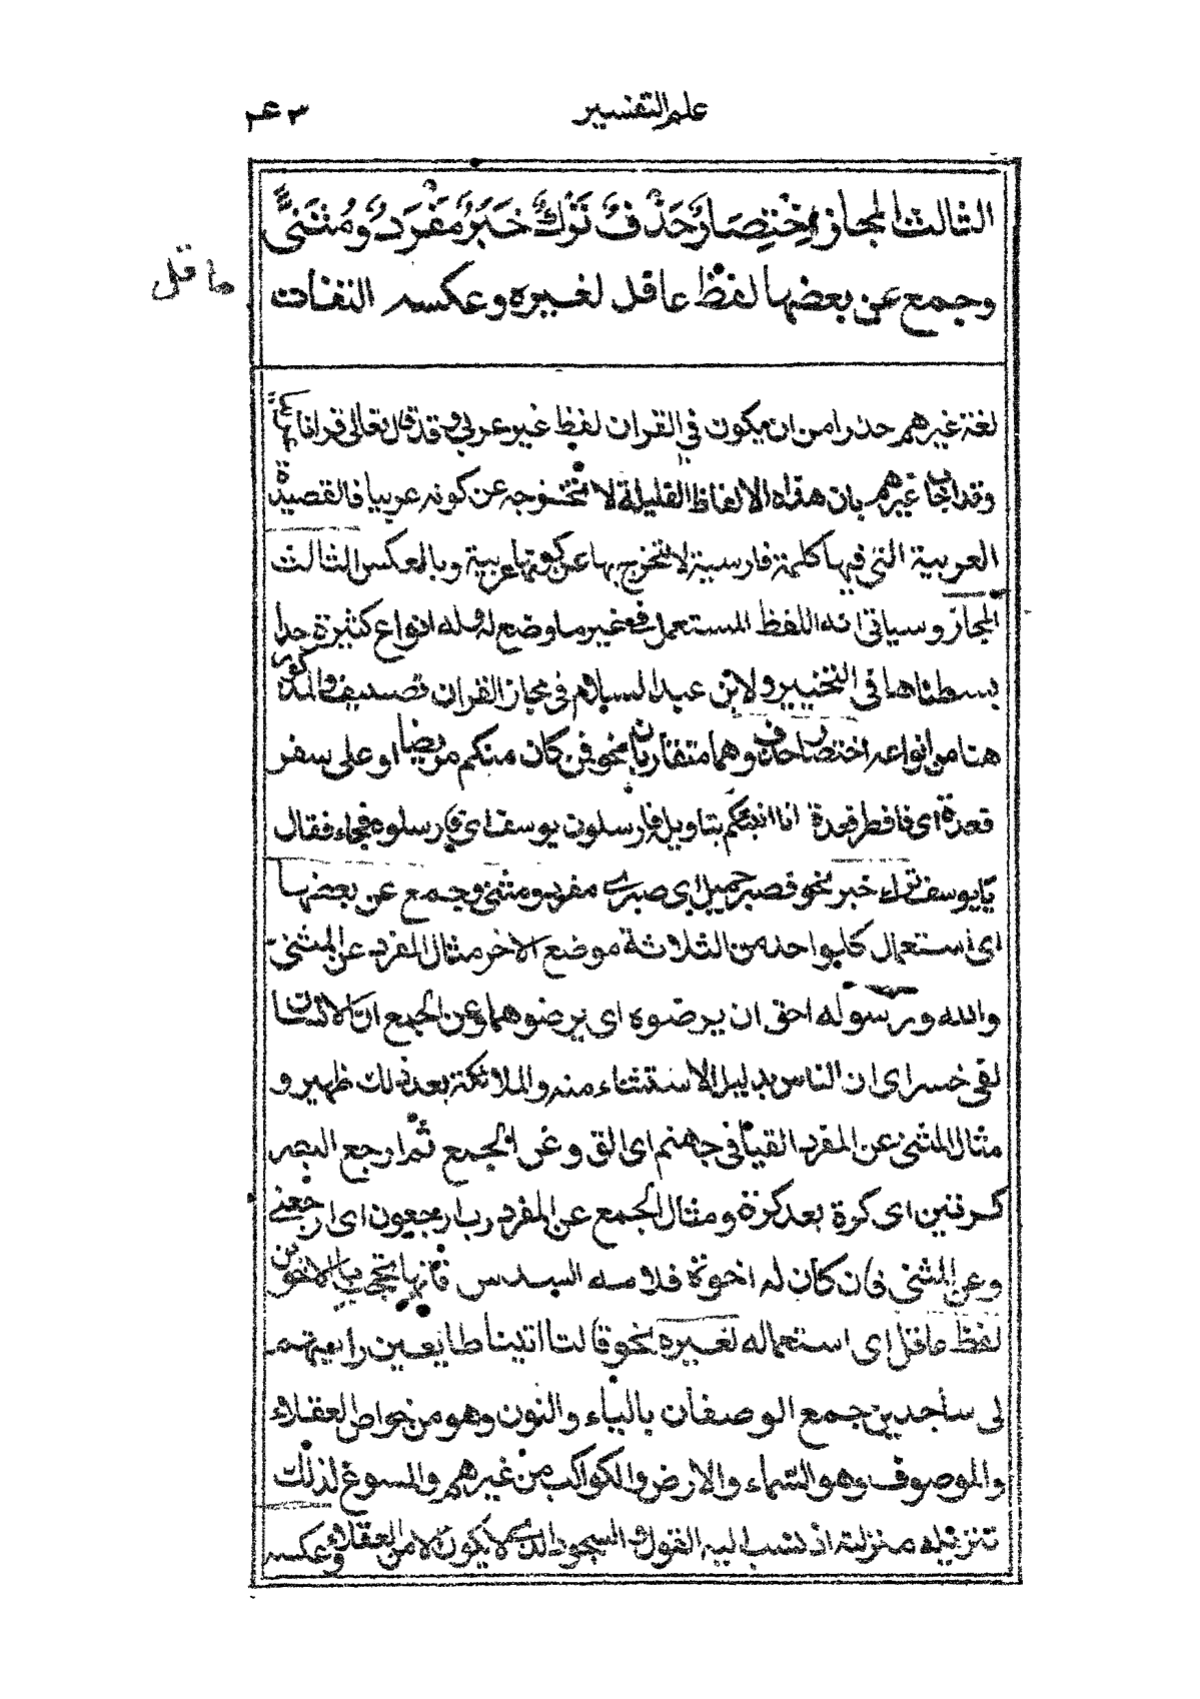 علم التفسير
٤٣
الثالث المجاز اِخْتِصَارُ حَذْفٌ تَرْكُ خَبَرٍ مُفْرَدٌ وَمُثَنًّى
وجمع عن بعضها لفظ عاقل لغيره وعكسه التفات
لغة غيرهم حذرا من ان يكون في القران لفظ غير عربي وقد قال تعالى قرانا عربيا
وقد اجاب غيرهم بان هذه الالفاظ القليلة لا تخرجه عن كونه عربيا فالقصيدة
العربية التي فيها كلمة فارسية لا تخرج بها عن كونها عربية وبالعكس الثالث
المجاز وسياتي انه اللفظ المستعمل في غير ما وضع له وله انواع كثيرة جدا
بسطناها في التحبير ولابن عبد السلام في مجاز القران تصنيف والمذكور
هنا من انواعه اختصار حذف وهما متقاربان نحو فمن كان منكم مريضا او على سفر
فعدة اى فافطر فعدة انا انبئكم بتاويله فارسلون يوسف اى فارسلوه فجاء فقال
يا يوسف ترك خبر نحو فصبر جميل اى صبرى مفرد ومثنى وجمع عن بعضها
اى استعمال كل واحد من الثلاثة موضع الاخر مثال المفرد عن المثنى
والله ورسوله احق ان يرضوه اى يرضوهما وعن الجمع ان الانسان
لفى خسر اى ان الناس بدليل الاستثناء منه والملائكة بعد ذلك ظهير و
مثال المثنى عن المفرد القيا فى جهنم اى الق وعن الجمع ثم ارجع البصر
كرتين اى كرة بعد كرة ومثال الجمع عن المفرد رب ارجعون اى ارجعنى
وعن المثنى فان كان له اخوة فلامه السدس فانها تحجب بالاخوين
لفظ عاقل اى استعماله لغيره نحو قالتا اتينا طايعين رايتهم
لى ساجدين جمع الوصفان بالياء والنون وهو من خواص العقلاء
والموصوف وهو السماء والارض والكواكب من غيرهم والمسوغ لذلك
تنزيله منزلته اذ نسب اليه القول والسجود الذى لا يكون الا من العقلاء وعكسه
عاقل